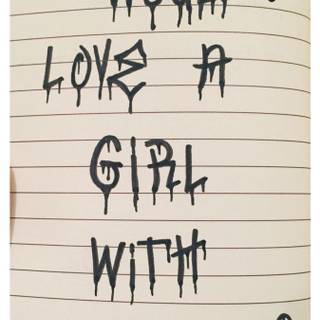 LOVE A
GIRL
WiTH